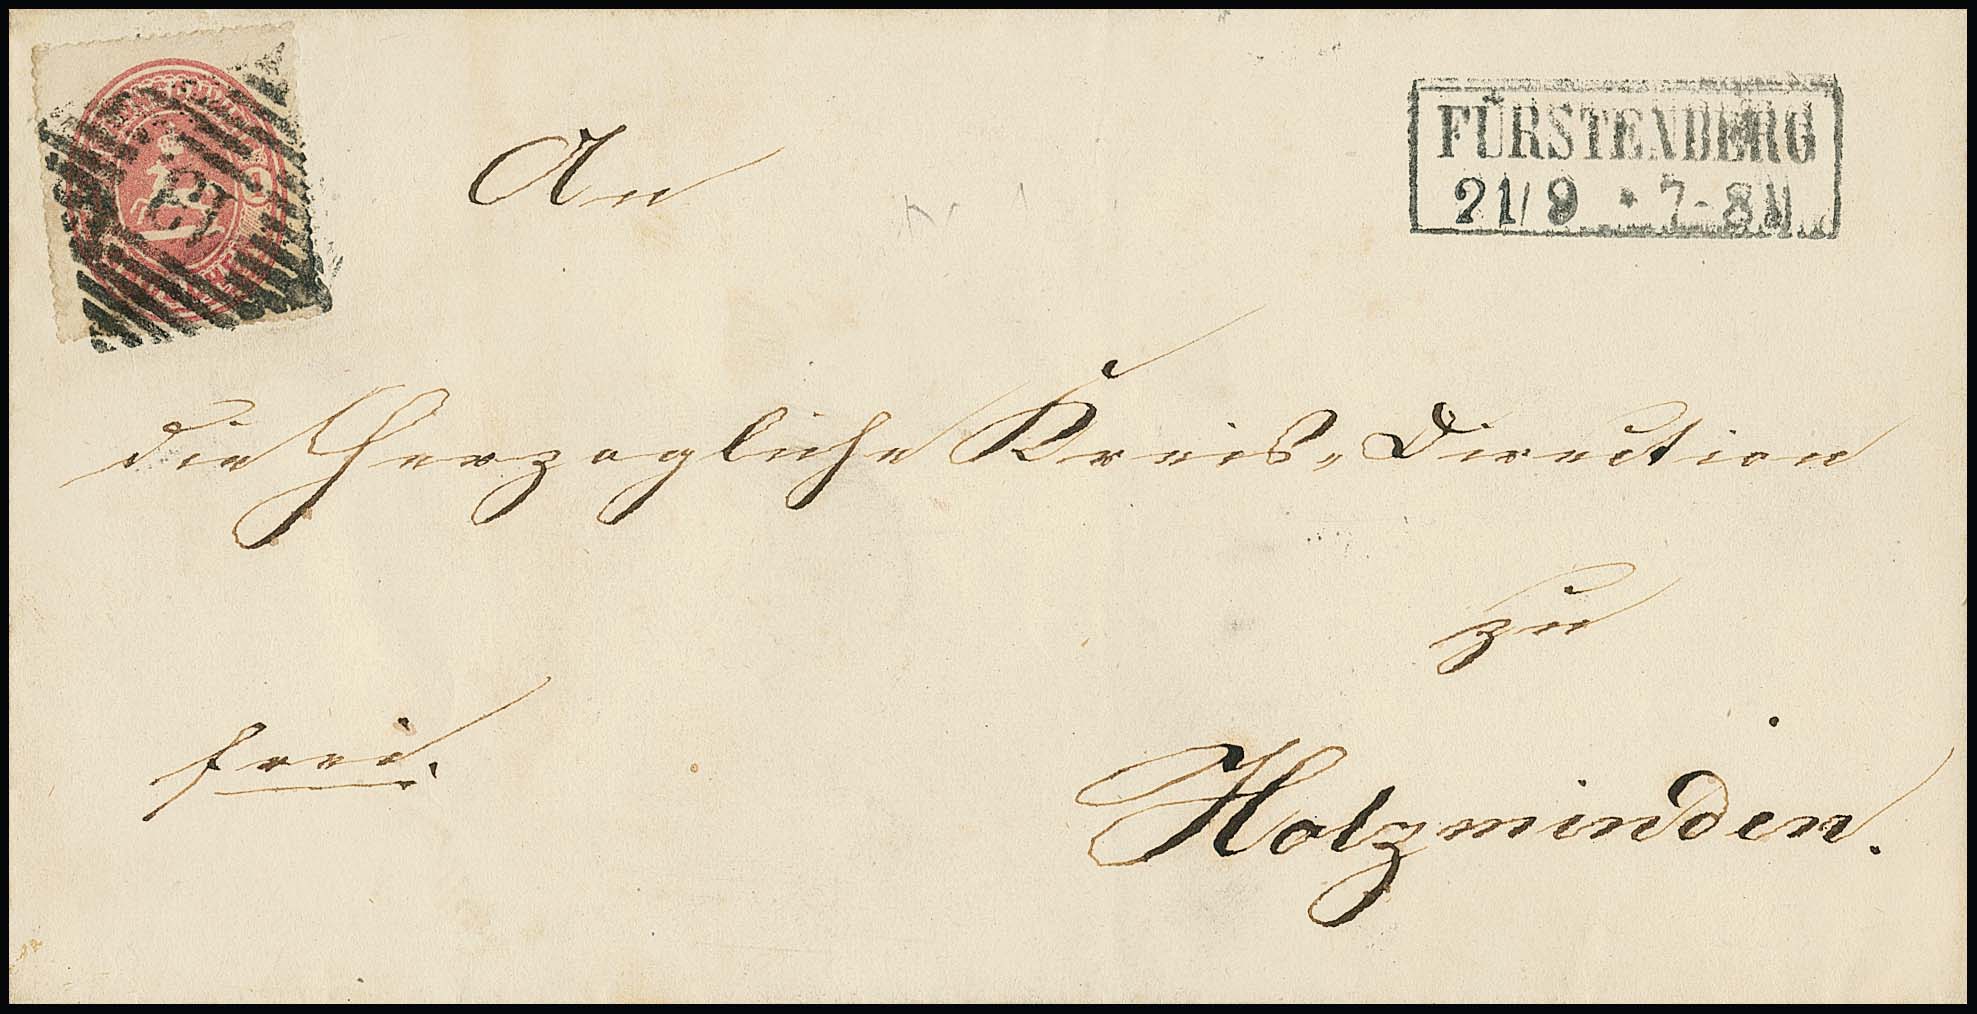 FÜRSTENBERG
21/9 * 7-8
An
die Herzogliche Kreis-Direction
zu
frei.
Holzminden.